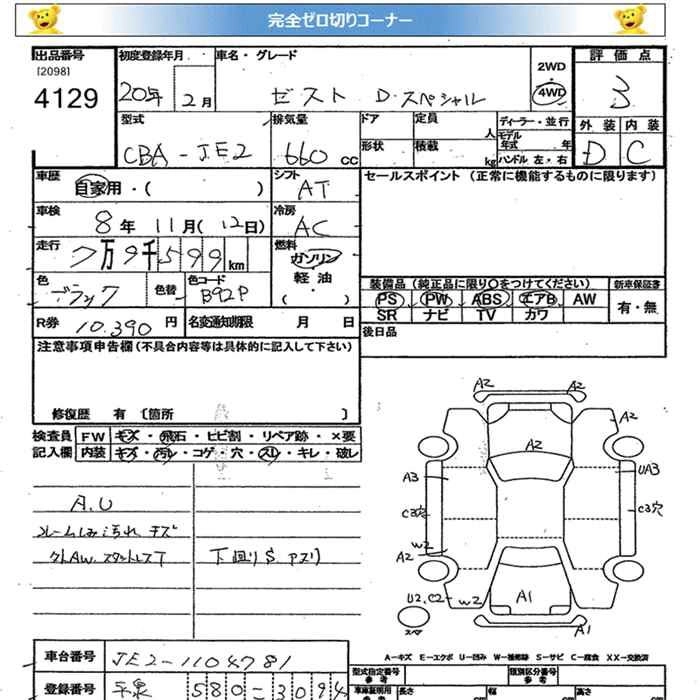 完全ゼロ切りコーナー
出品番号 初度登録年月 車名・グレード 評価点
[2098]
4129 20年 2月 ゼスト D.スペシャル 2WD・4WD 3
型式 排気量 ドア 定員 人 ディーラー・並行 外装 内装
CBA-JE2 660cc 形状 積載 kg モデル年式 年 ハンドル 左・右 D C
車歴 自家用・( ) シフト AT セールスポイント (正常に機能するものに限ります)
車検 8年 11月(12日) 冷房 AC
走行 7万9千599km 燃料 ガソリン 軽油 (・)
色 ブラック 色替 色コード B92P
装備品(純正品に限り○をつけてください) 新車保証書
PS PW ABS エアB AW 有・無
SR ナビ TV カワ
R券 10.390円 名変通知期限 月 日 後日品
注意事項申告欄(不具合内容等は具体的に記入して下さい)
修復歴 有 [箇所 ]
検査員 FW キズ・飛石・ヒビ割・リペア跡・×要
記入欄 内装 キズ・汚レ・コゲ・穴・スレ・キレ・破レ
A.U
汚れ キズ
下回りS アリ
A2 A2
A2
A2
A3 UA3
C3穴 C3穴
W2
A2
U2.C2 W2 A1
A1
スペア
A-キズ E-エクボ U-凹み W-補修跡 S-サビ C-腐食 XX-交換済
車台番号 JE2-1104781
型式指定番号 参考 類別区分番号 参考
登録番号 平泉 580-3094
車庫証明用 参考 長さ 幅 高さ